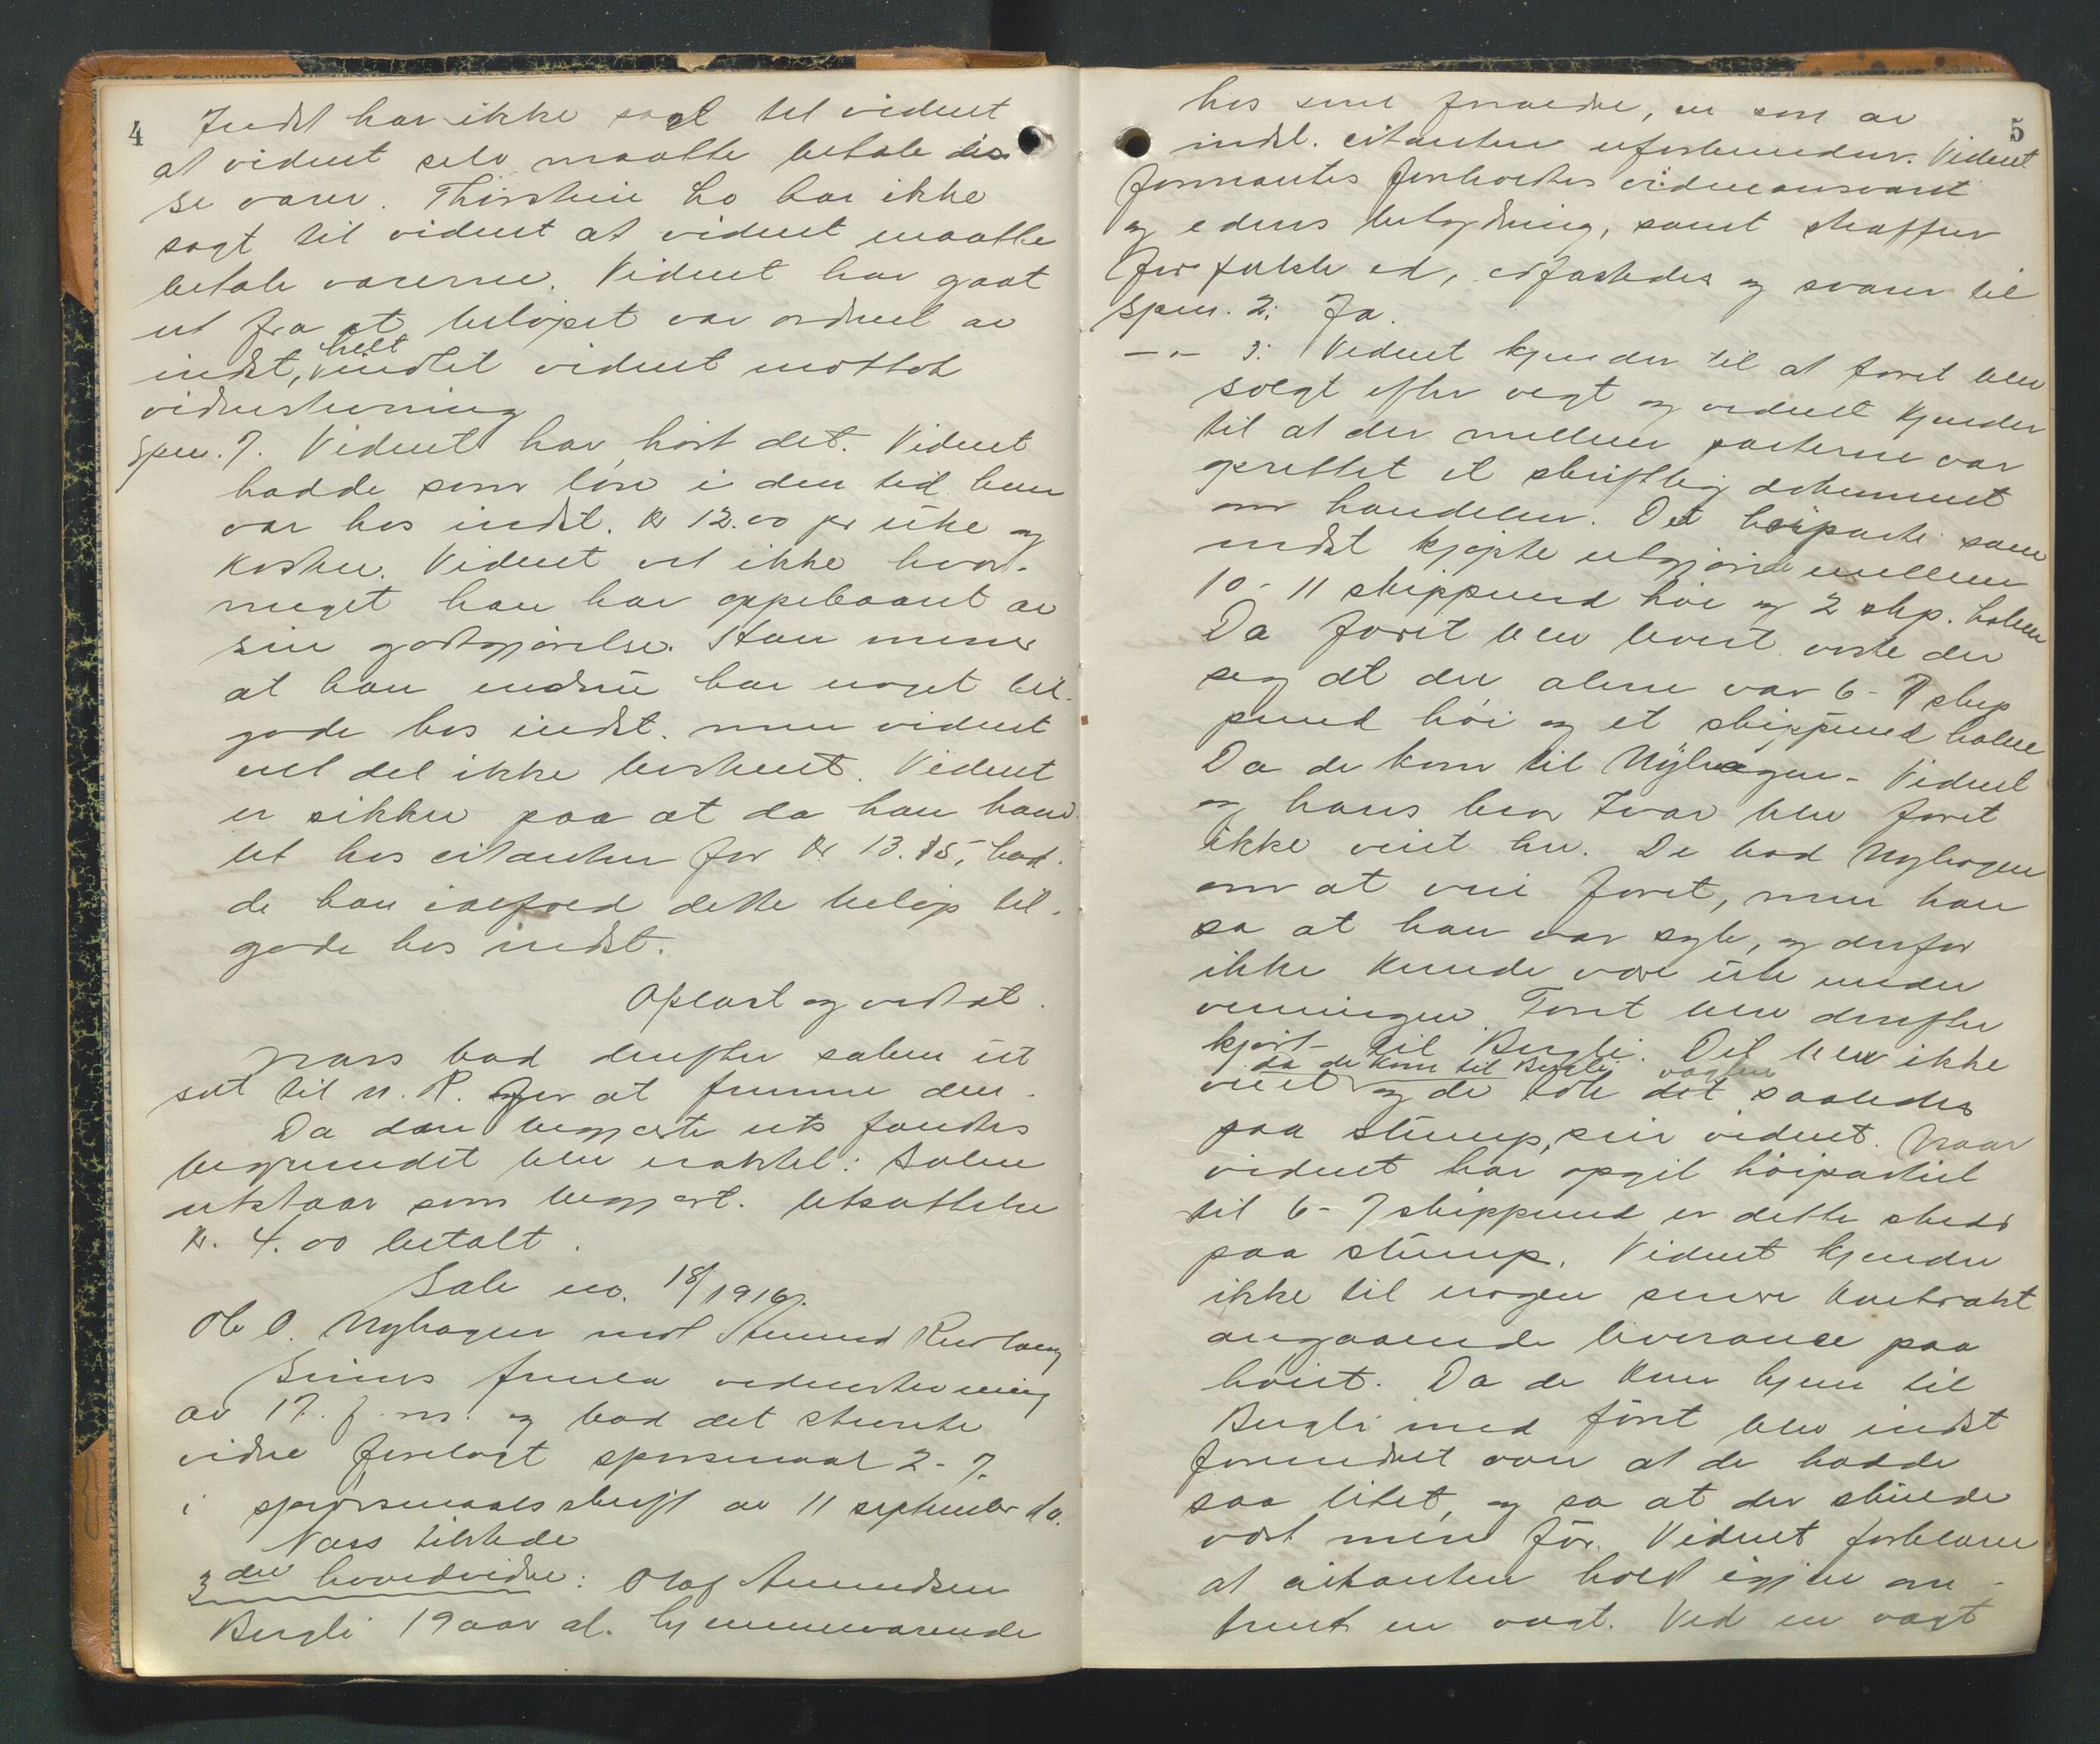 4
Indst har ikke sagt til vidnet
at vidnet selv maatte betale dis-
se varer. Thirstein Lo har ikke
sagt til vidnet at vidnet maatte
betale varerne. Vidnet har gaat
ut fra at beløpet var ordnet av
indst, helt indtil vidnet mottok
vidnestevning
Spm. 7. Vidnet har hørt det. Vidnet
hadde som løn i den tid han
var hos indst. Kr 12.00 pr uke og
kosten. Vidnet vet ikke hvor-
meget han har oppebaaret av
sin godtgjørelse. Han mener
at han endnu har noget til-
gode hos indst. men vidnet
vet det ikke bestemt. Vidnet
er sikker paa at da han hand-
let hos citanten for Kr 13.85, had-
de han ialfald dette beløp til-
gode hos indst.
Oplæst og vedtat.
Næss bad derefter saken ut
sat til n. R. for at fremme den.
Da den begjærte uts. fandtes
begrundet blev eraktet: Saken
utstaar som begjært. Utsættelse
Kr. 4.00 betalt.
Sak no. 18/1916.
Ole O. Nyhagen mot Amund
frmla vidnestevning
av 17. f. m. og bad det stevnte
vidne forelagt spørsmaal 2-7.
i spørsmaalsskrift av 11 september d.a.
Næss tilstede
3die hovedvidne: Olaf Amundsen
Bergli 19 aar al. hjemmeværende
5
hos sine forældre, er søn av
indst. citanten uforbunden. Vidnet
formantes foreholdtes vidneansvaret
og edens betydning, samt straffen
for falsk ed, edfæstedes og svarer til
Spm. 2: Ja.
-"- 3: Vidnet kjender til at foret blev
solgt efter vegt og vidnet kjender
til at der mellem parterne var
oprettet et skriftlig dokument
om handelen. Det høiparti som
indst kjøpte utgjøre mellem
10-11 skippund høi og 2 skp. halm
Da foret blev levert viste det
sig at det alene var 6-7 skip
pund høi og et skippund halm
Da de kom til Nyhagen - Vidnet
og hans bror Ivar blev foret
ikke veiet her. De bad Nyhagen
om at veie foret, men han
sa at han var syk, og derfor
ikke kunde være ute under
veiningen. Foret blev derefter
kjørt til Bergli. Det blev ikke
veiet da de kom til Bergli og de tok det saaledes
paa stump, sier vidnet. Naar
vidnet har opgit høipartiet
til 6-7 skippund er dette skedd
paa stump. Vidnet kjender
ikke til nogen senere kontrakt
angaaende leverance paa
høiet. Da de kom hjem til
Bergli med foret blev indst
forundret over at de hadde
saa litet, og sa at der skulde
vært mere for. Vidnet forklarer
at citanten holdt igjen om-
trent en vægt. Ved en vægt